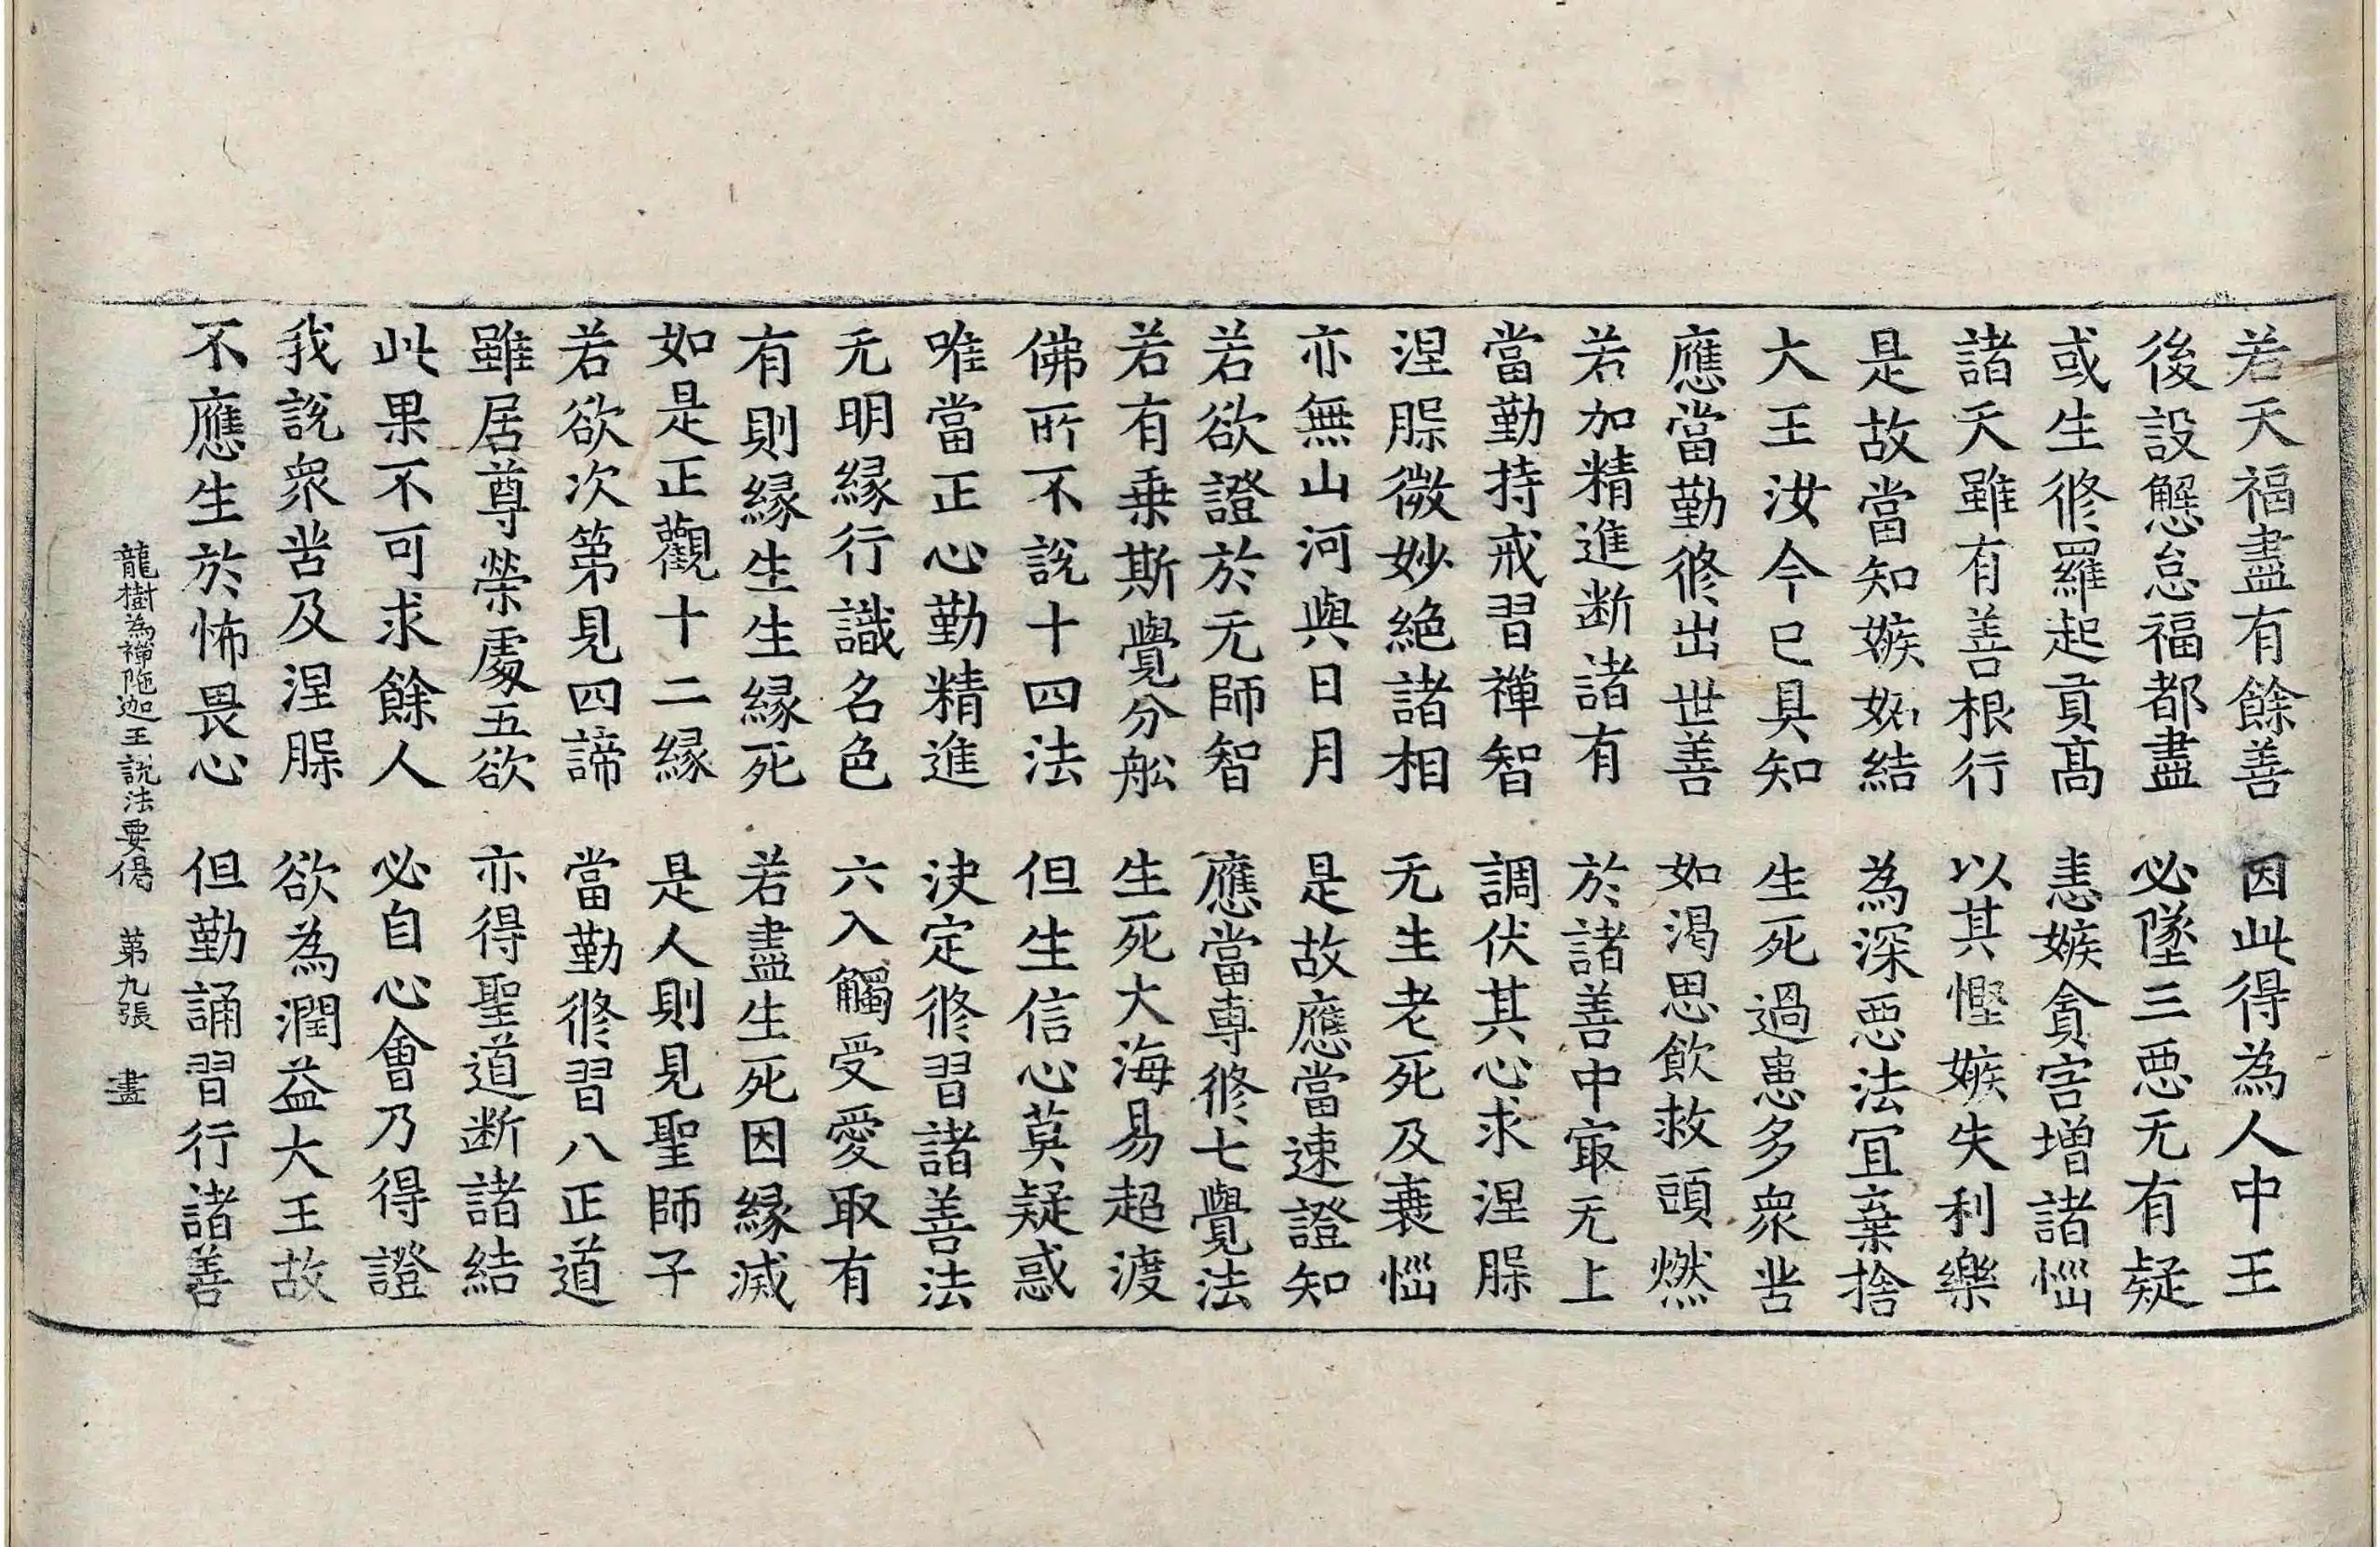 若天福盡有餘善　因此得為人中王
後設懈怠福都盡　必墜三惡无有疑
或生修羅起貢高　恚嫉貪害增諸惱
諸天雖有善根行　以其慳嫉失利樂
是故當知嫉妬結　為深惡法冝棄捨
大王汝今已具知　生死過患多衆苦
應當勤修出世善　如渴思飲救頭燃
若加精進断諸有　於諸善中冣无上
當勤持戒習禪智　調伏其心求涅槃
涅槃微妙絕諸相　无生老死及衰惱
亦無山河與日月　是故應當速證知
若欲證於无師智　應當專修七覺法
若有乗斯覺分舩　生死大海易超渡
佛所不說十四法　但生信心莫疑惑
唯當正心勤精進　決定修習諸善法
无明緣行識名色　六入觸受愛取有
有則緣生生緣死　若盡生死因緣滅
如是正觀十二緣　是人則見聖師子
若欲次第見四諦　當勤修習八正道
雖居尊榮處五欲　亦得聖道断諸結
此果不可求餘人　必自心會乃得證
我說衆苦及涅槃　欲為潤益大王故
不應生於怖畏心　但勤誦習行諸善
龍樹為禪陁迦王說法要偈　第九張　畫